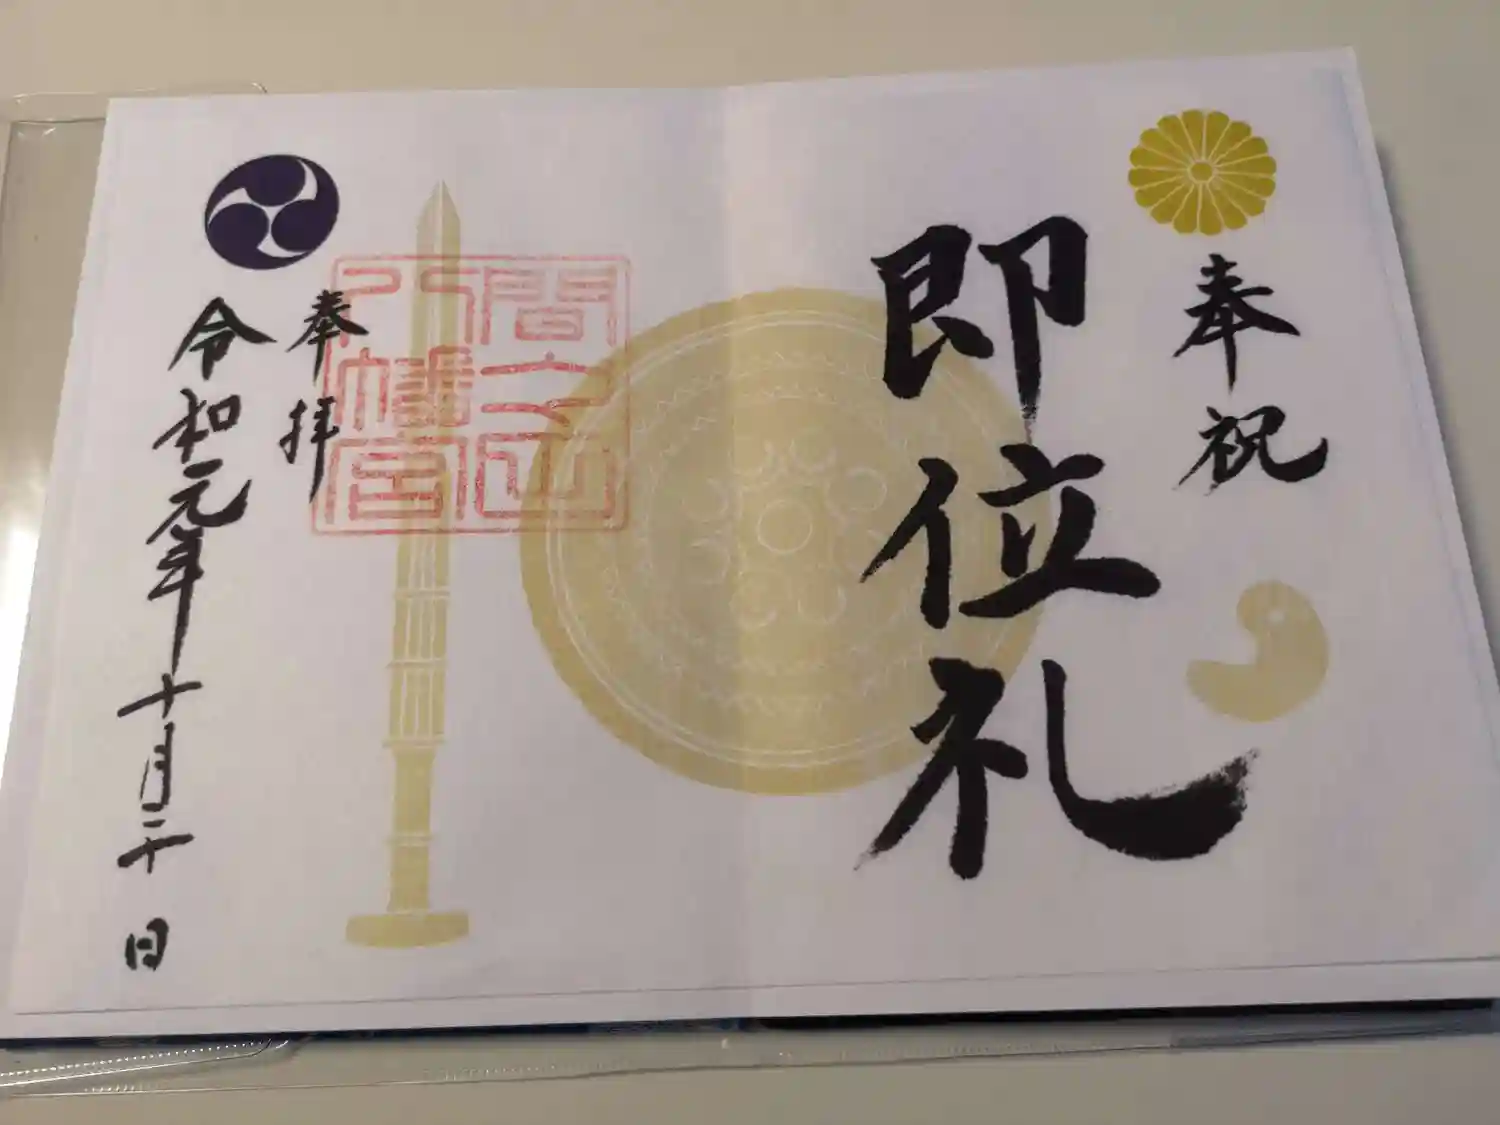 奉祝
即位礼
奉拝
令和元年十月二十日
間
八幡宮